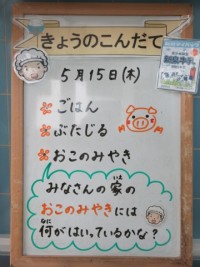 きょうのこんだて
5月15日(木)
ごはん
ぶたじる
おこのみやき
みなさんの家のいえ
おこのみやきには
何がはいっているかな？
なに